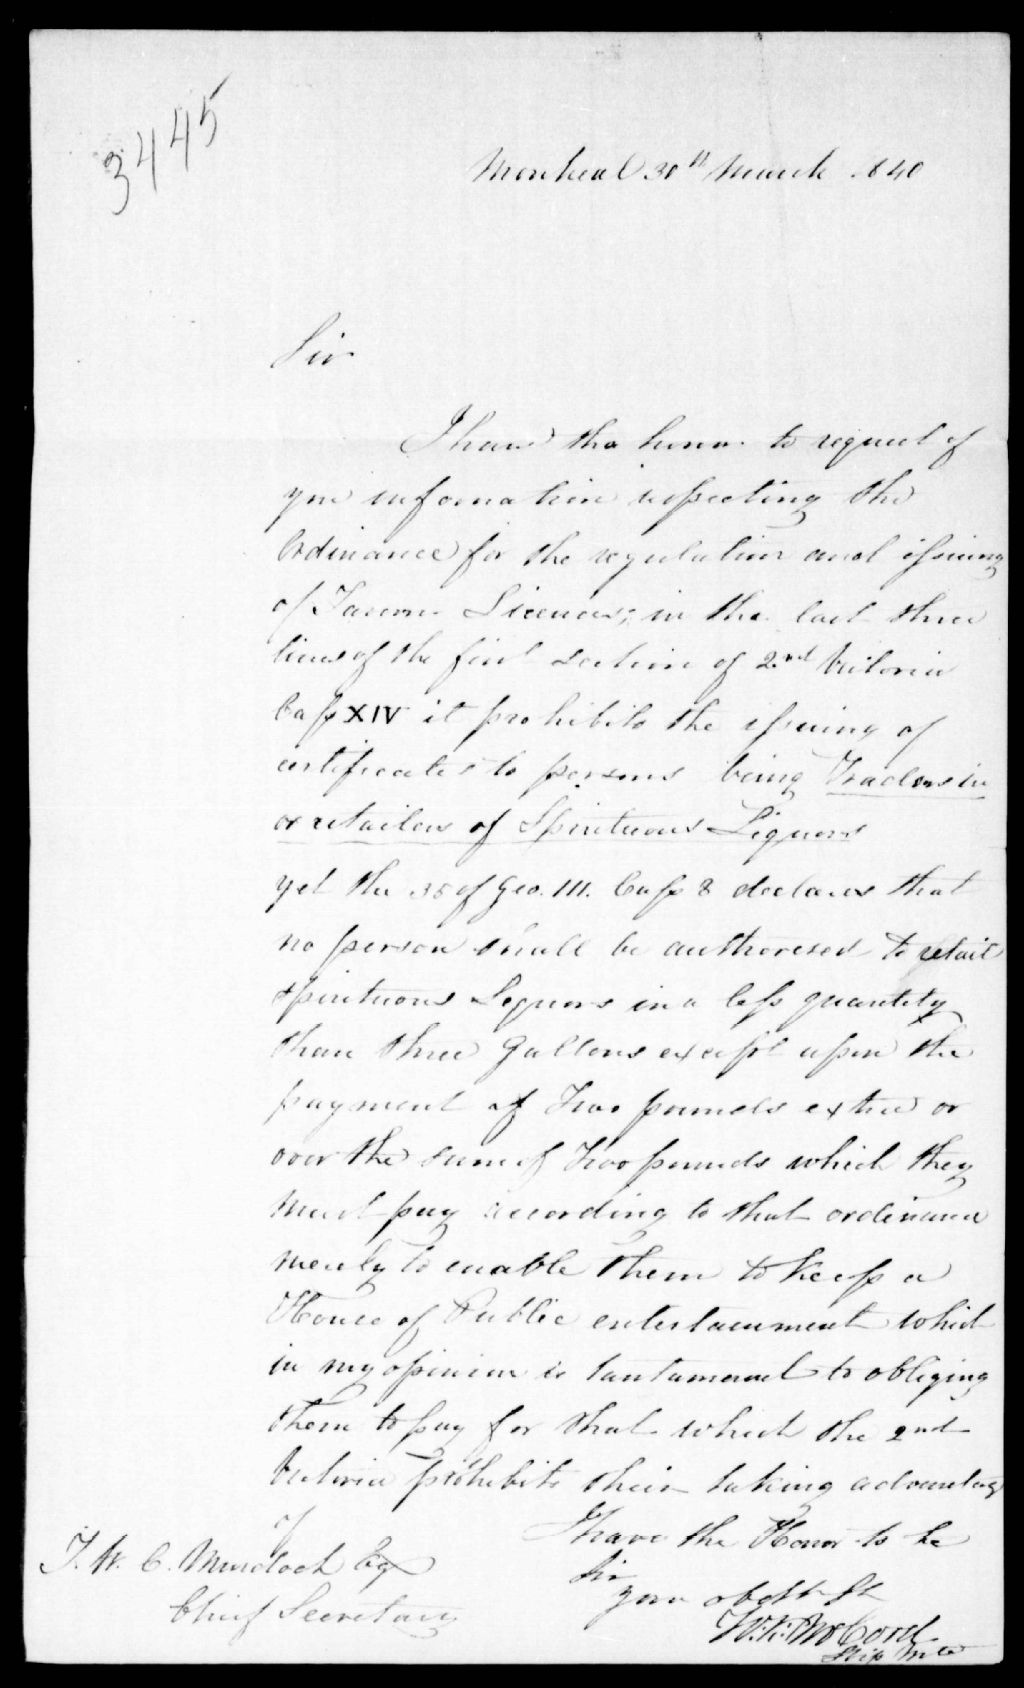 3445
Montreal 30th March 1840
Sir
I have the honor to request of
you information respecting the
Ordinance for the regulation and issuing
of Tavern Licences; in the last three
lines of the first section of 2nd Victoria
Cap XIV it prohibits the issuing of
certificates to persons being Traders in
or retailers of Spirituous Liquors
yet the 35 of Geo. III. Cap 8 declares that
no person shall be authorised to retail
spirituous Liquors in a less quantity
than three Gallons except upon the
payment of Two pounds extra or
over the sum of Two pounds which they
must pay according to that ordinance
merely to enable them to keep a
House of Public entertainment which
in my opinion is tantamount to obliging
them to pay for that which the 2nd
Victoria prohibits their taking advantage
of
I have the Honor to be
Sir
your obdt St
W. K. McCord
Stip Mte
T. W. C. Murdoch Esq
Chief Secretary